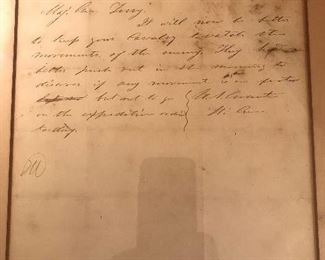 Maj. Gen. Terry.
It will now be better
to keep your Cavalry to watch the
movements of the enemy. They had
better push out in the morning to
discover if any movement is
but not to go
on the expedition
to-day.
U. S. Grant
Lt. Gen.